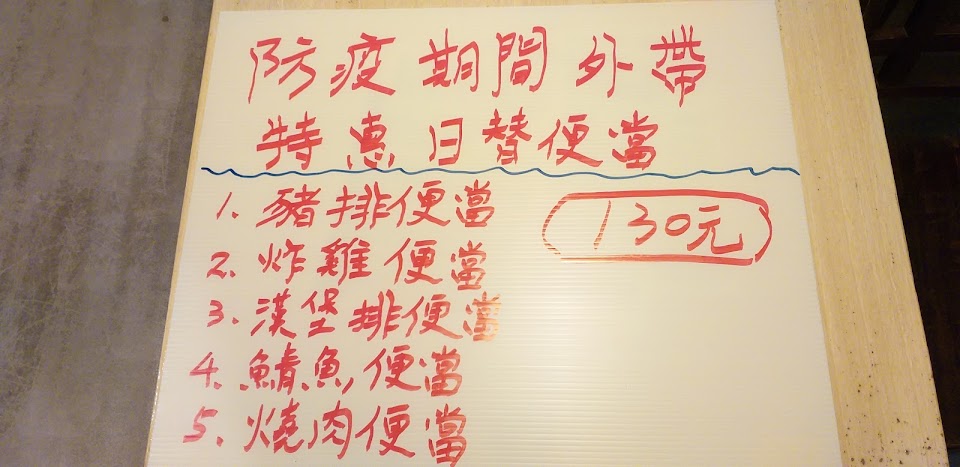 防疫期間外帶
特惠日替便當
130元
1. 豬排便當
2. 炸雞便當
3. 漢堡排便當
4. 鯖魚便當
5. 燒肉便當